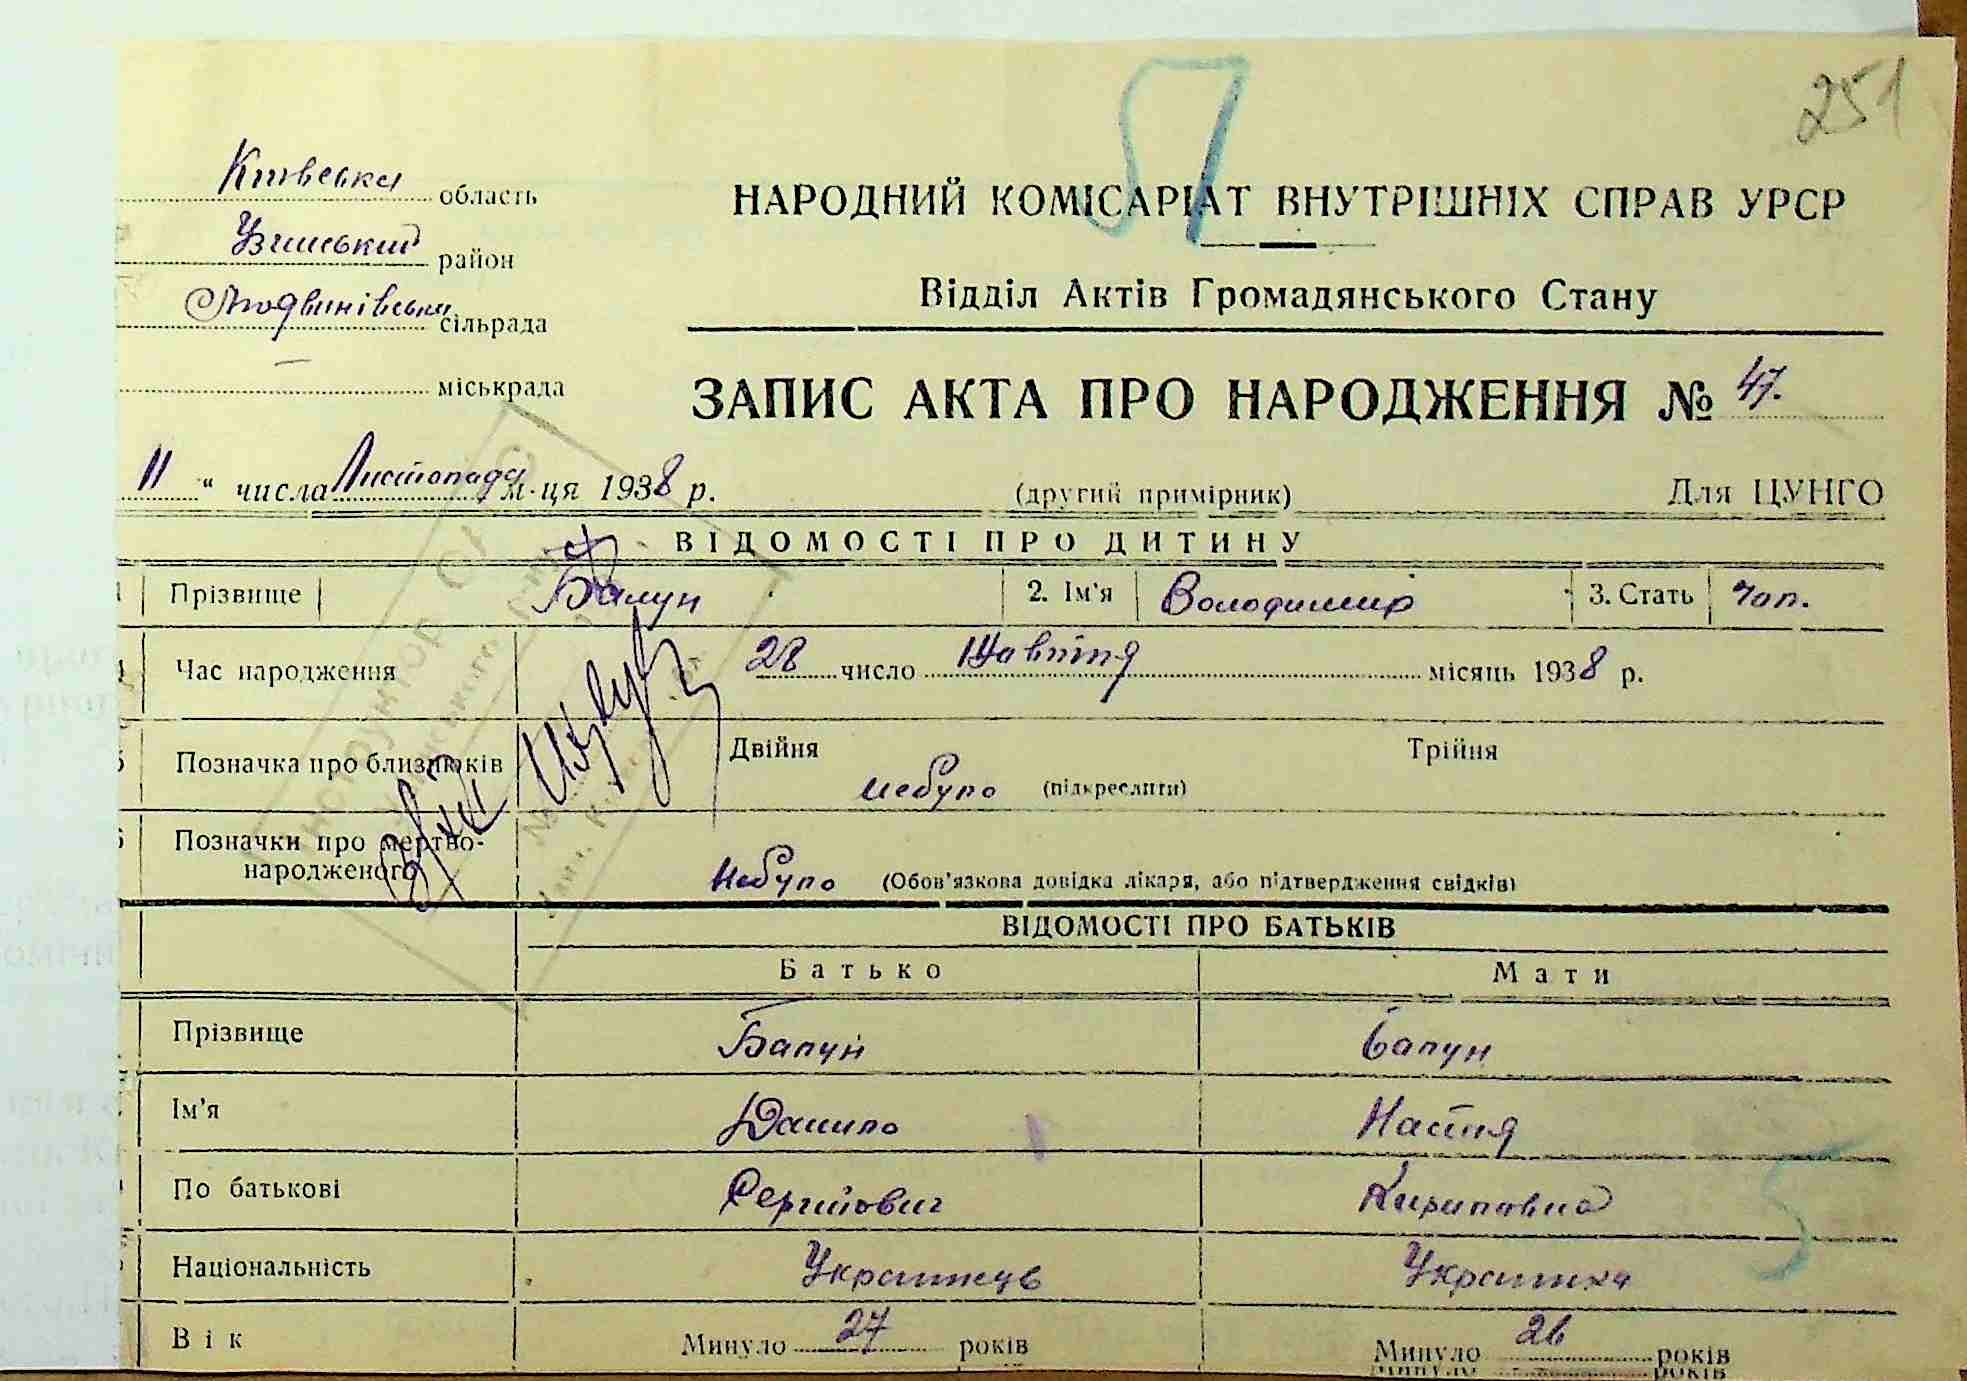 251
Київська область
Узинський район
сільрада
міськрада
НАРОДНИЙ КОМІСАРІАТ ВНУТРІШНІХ СПРАВ УРСР
Відділ Актів Громадянського Стану
ЗАПИС АКТА ПРО НАРОДЖЕННЯ № 47.
11 " числа Листопада м-ця 1938 р. (другий примірник) Для ЦУНГО
ВІДОМОСТІ ПРО ДИТИНУ
Прізвище Бапун 2. Ім'я Володимир 3. Стать чол.
Час народження 28 число Жовтня місяць 1938 р.
Позначка про близнюків Двійня Трійня
небуло (підкреслити)
Позначки про мертво-
народженого небуло (Обов'язкова довідка лікаря, або підтвердження свідків)
ВІДОМОСТІ ПРО БАТЬКІВ
Батько Мати
Прізвище Бапун Бапун
Ім'я Данило Настя
По батькові Сергійович Кириловна
Національність Українець Українка
Вік Минуло 27 років Минуло 26 років